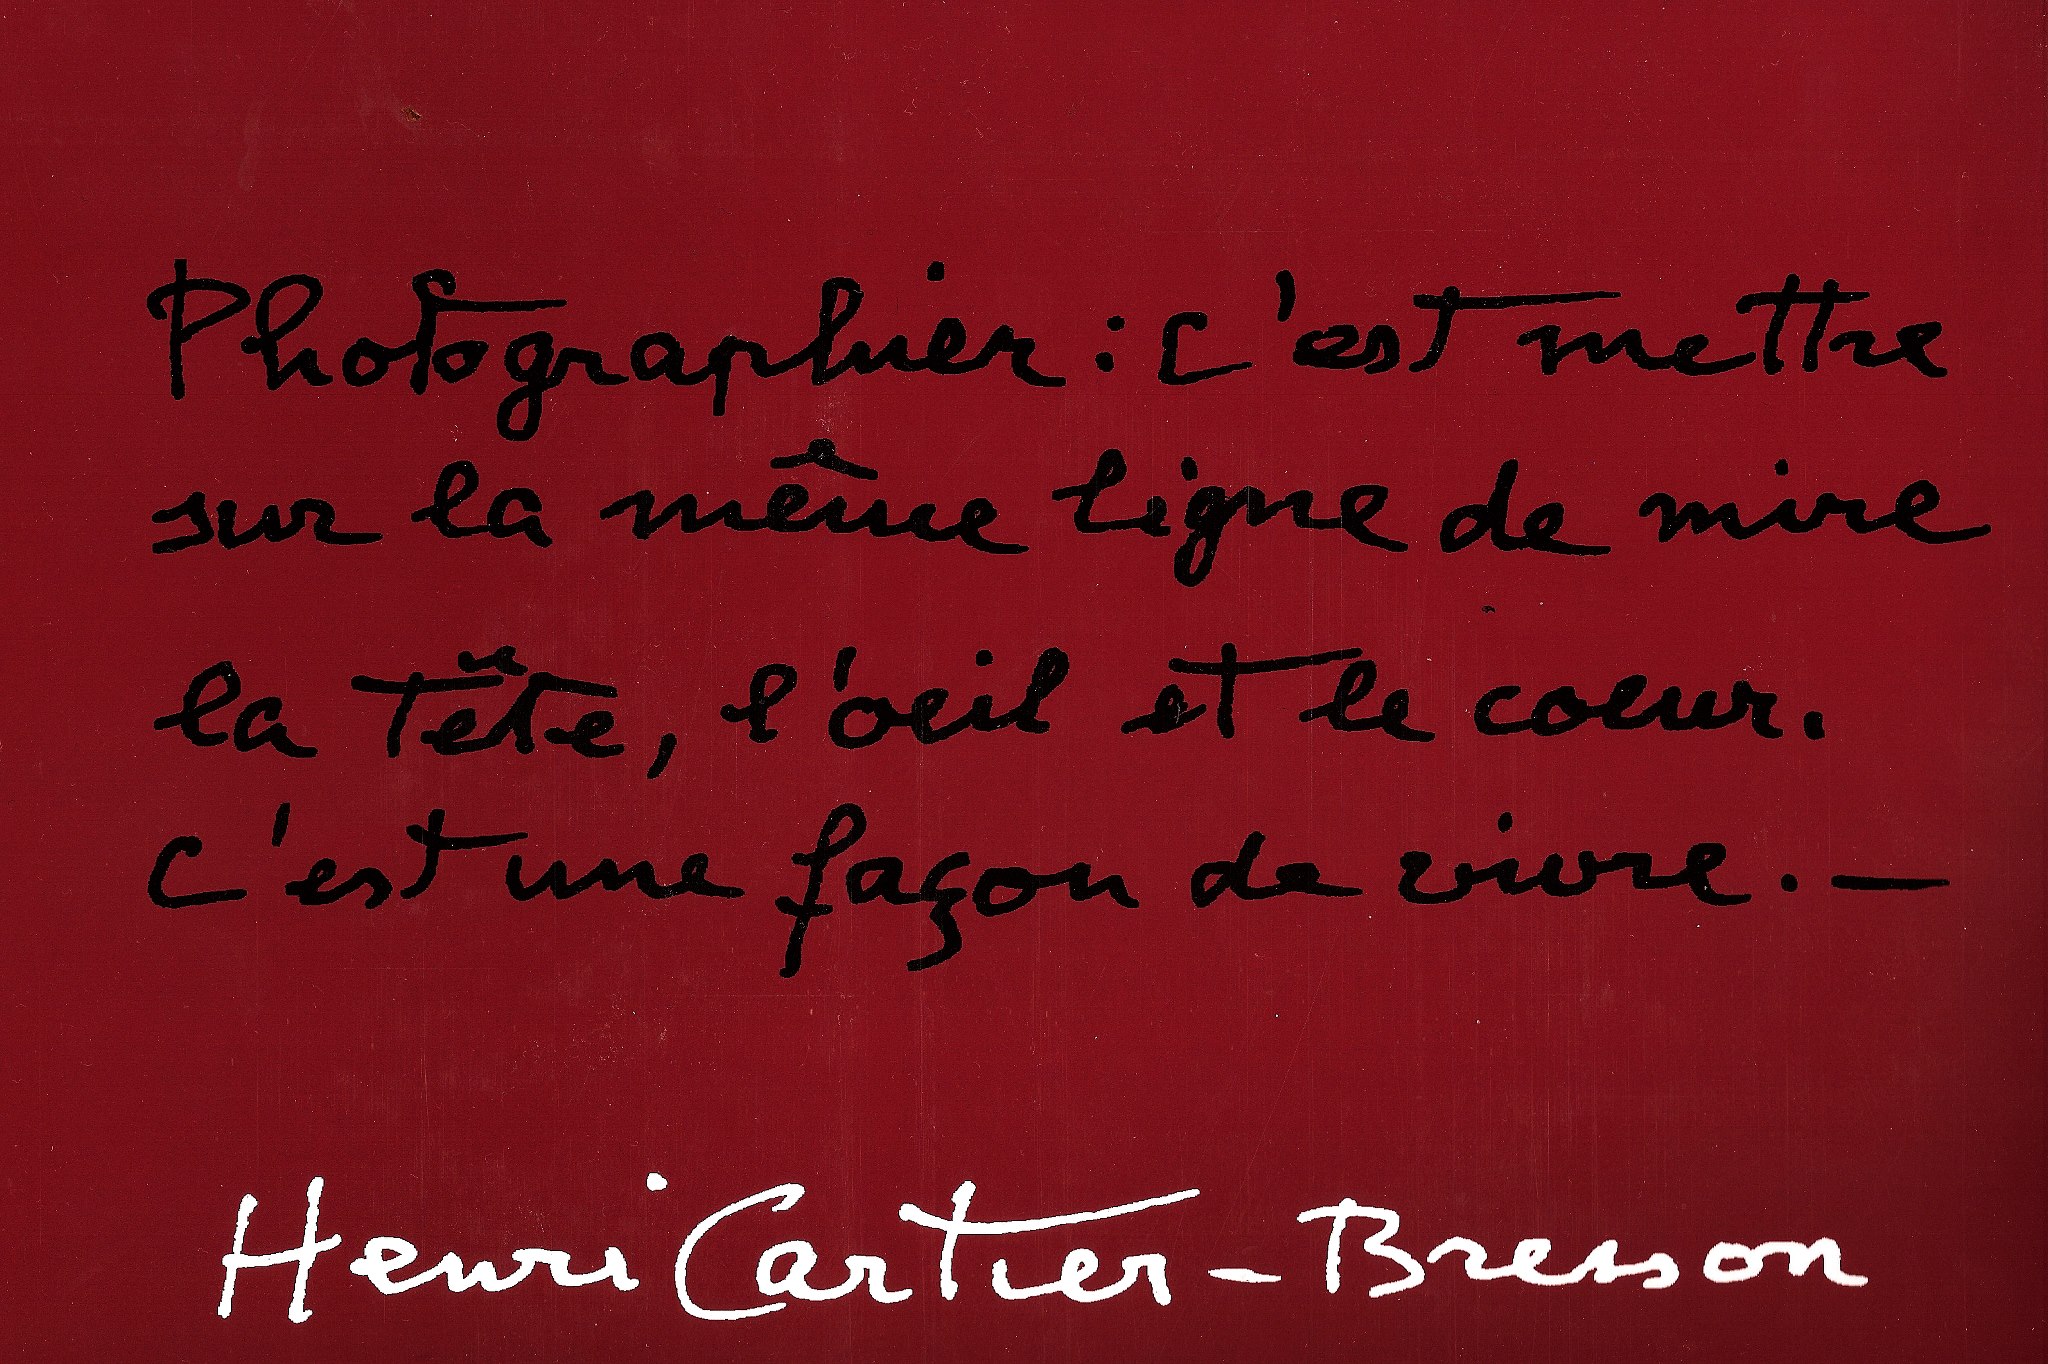 Photographier : c'est mettre
sur la même ligne de mire
la tête, l'oeil et le coeur.
c'est une façon de vivre. —
Henri Cartier-Bresson